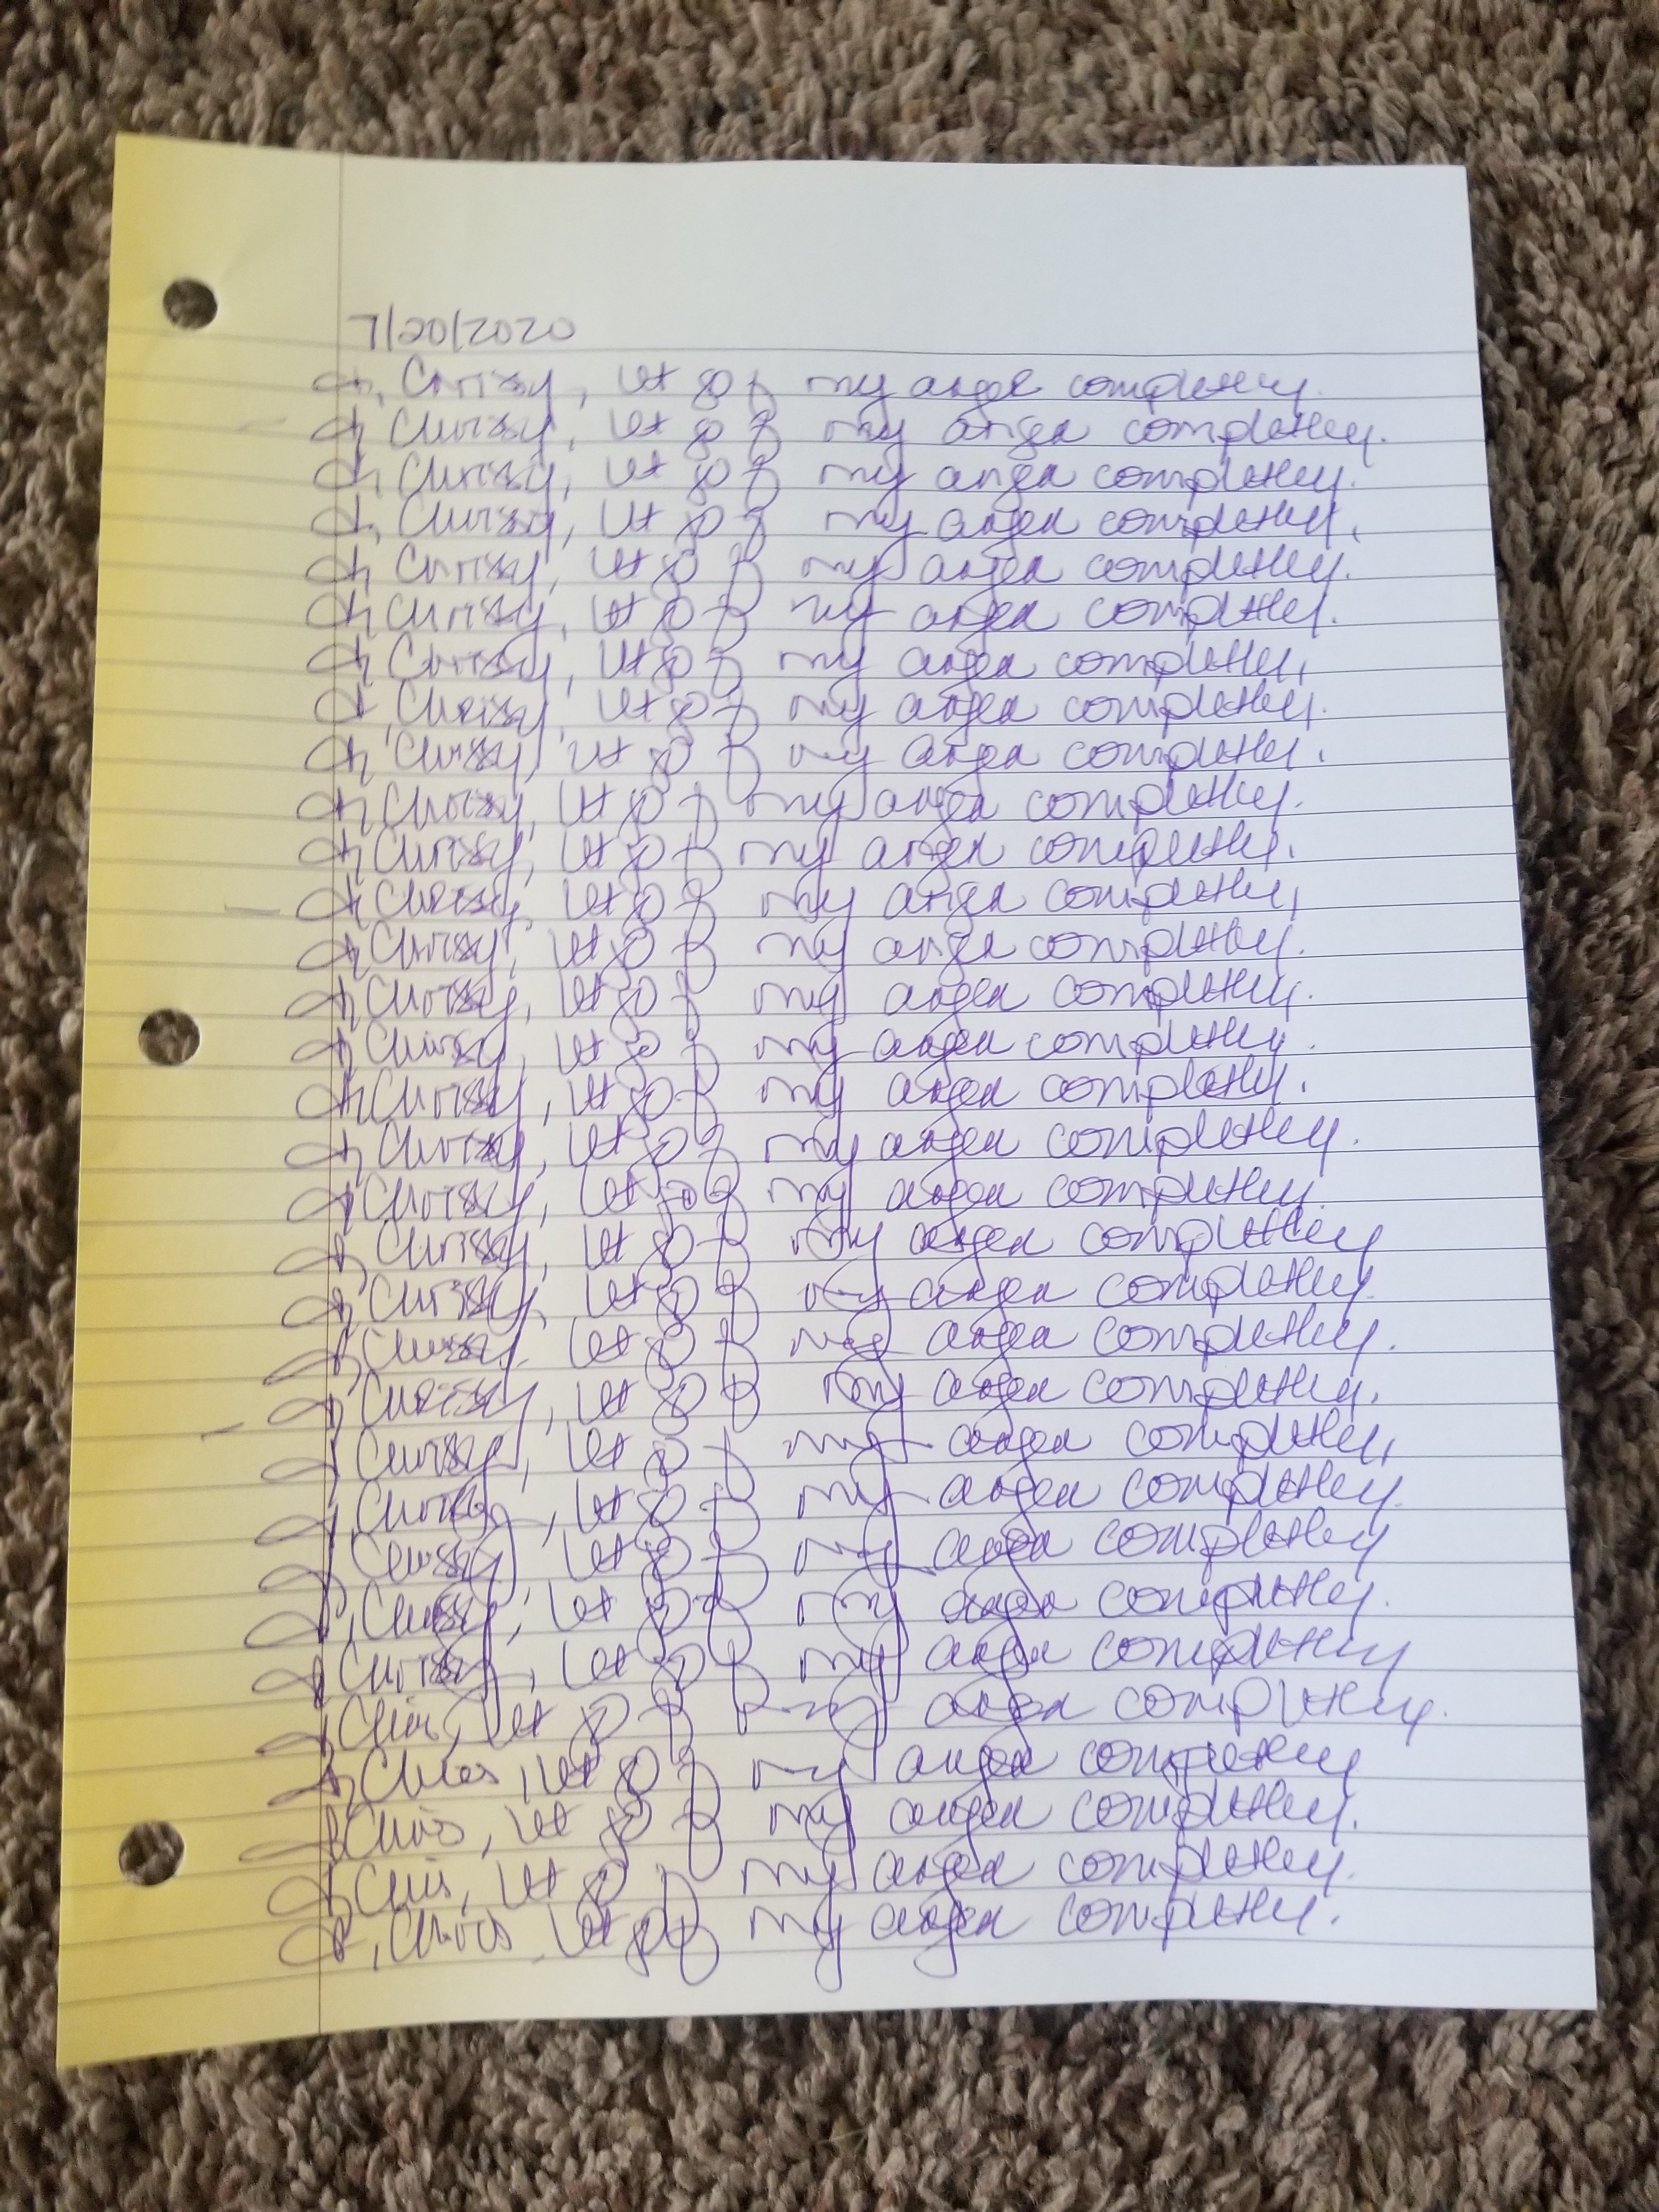 7/20/2020
I, Chrissy, let go of my anger completely.
I, Chrissy, let go of my anger completely.
I, Chrissy, let go of my anger completely.
I, Chrissy, let go of my anger completely.
I, Chrissy, let go of my anger completely.
I, Chrissy, let go of my anger completely.
I, Chrissy, let go of my anger completely.
I, Chrissy, let go of my anger completely.
I, Chrissy, let go of my anger completely.
I, Chrissy, let go of my anger completely.
I, Chrissy, let go of my anger completely.
I, Chrissy, let go of my anger completely.
I, Chrissy, let go of my anger completely.
I, Chrissy, let go of my anger completely.
I, Chrissy, let go of my anger completely.
I, Chrissy, let go of my anger completely.
I, Chrissy, let go of my anger completely.
I, Chrissy, let go of my anger completely.
I, Chrissy, let go of my anger completely
I, Chrissy, let go of my anger completely.
I, Chrissy, let go of my anger completely.
I, Chrissy, let go of my anger completely.
I, Chrissy, let go of my anger completely.
I, Chrissy, let go of my anger completely.
I, Chrissy, let go of my anger completely
I, Chrissy, let go of my anger completely.
I, Chrissy, let go of my anger completely
I, Chris, let go of my anger completely.
I, Chris, let go of my anger completely
I, Chris, let go of my anger completely.
I, Chris, let go of my anger completely.
I, Chris, let go of my anger completely.